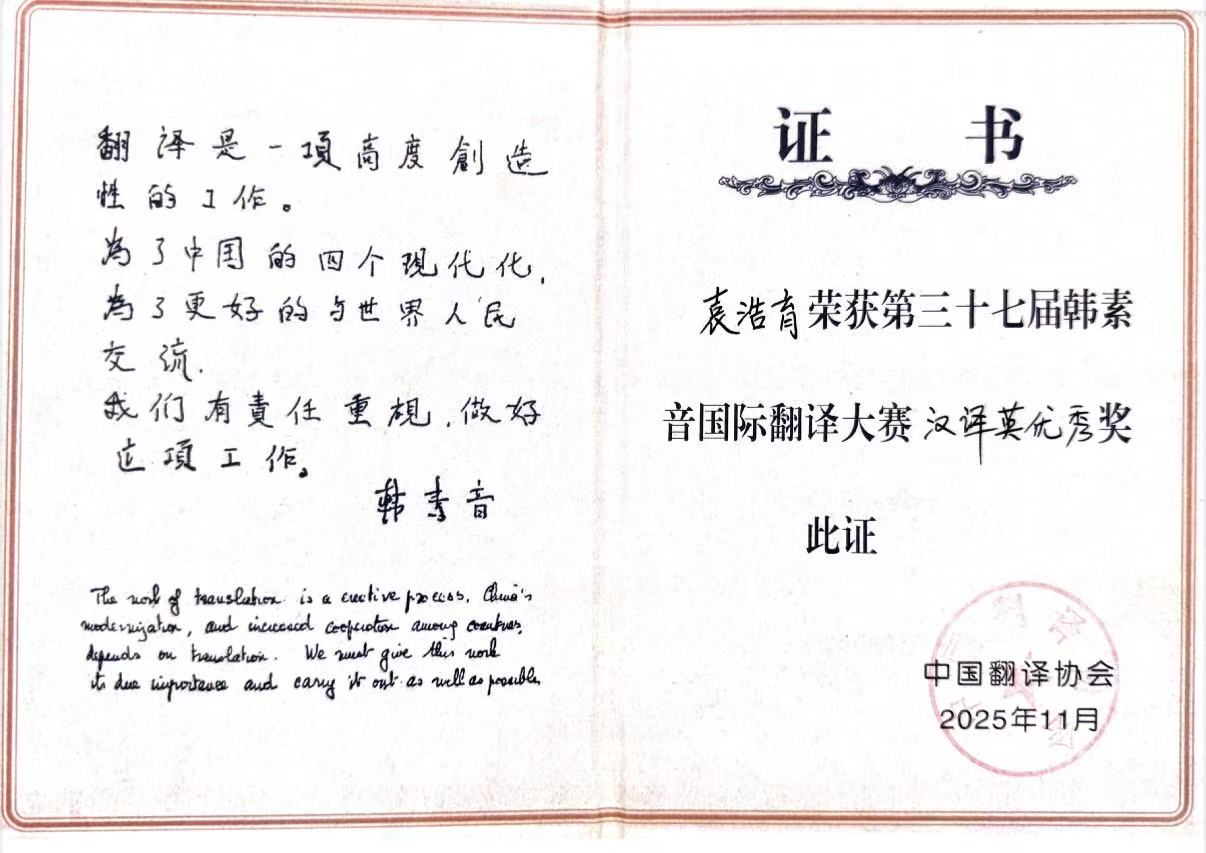 翻译是一項高度創造
性的工作。
為了中国的四个現代化,
為了更好的与世界人民
交流.
我们有責任重視,做好
这項工作。
韩素音
The work of translation is a creative process. China's
modernization, and increased cooperation among countries,
depends on translation. We must give this work
its due importance and carry it out as well as possible.
证 书
袁浩育荣获第三十七届韩素
音国际翻译大赛汉译英优秀奖
此证
中国翻译协会
2025年11月